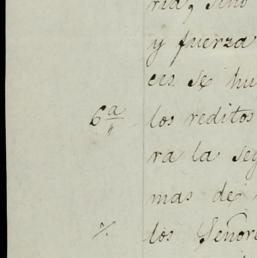 ria, sino
y fuerza
ces se hu
6ª los reditos
ra la seg
mas de
los Señore